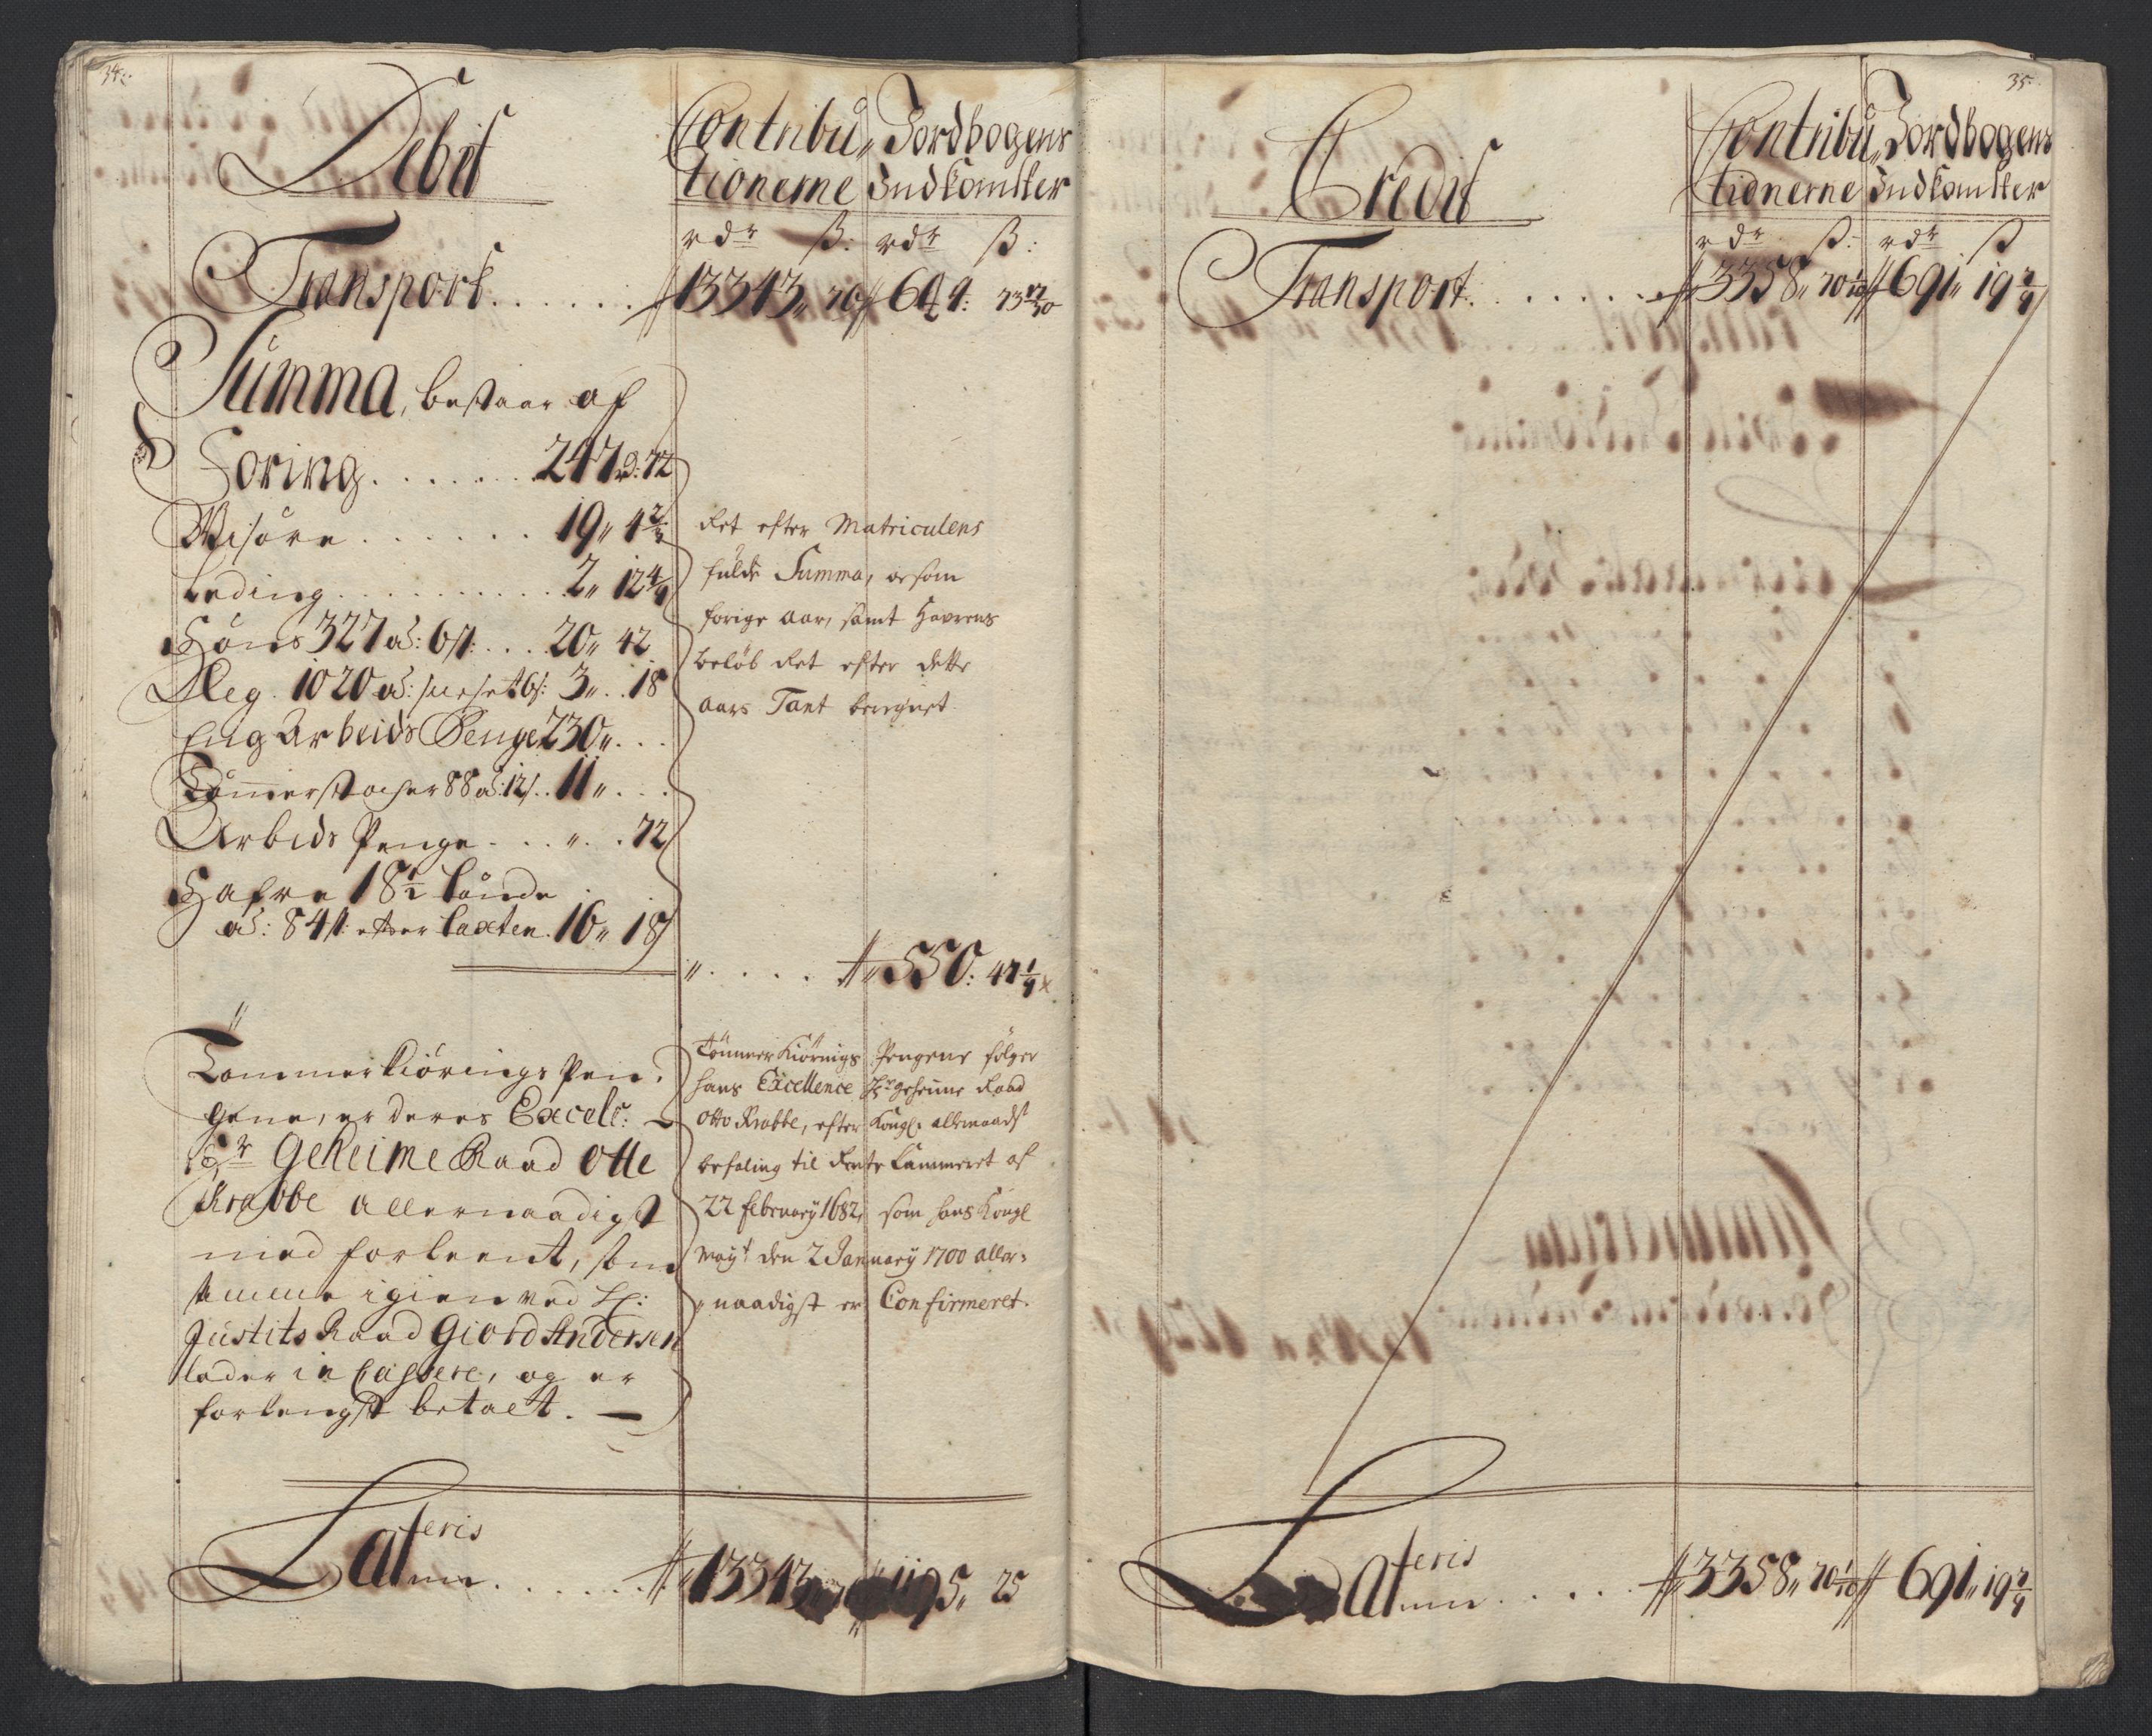 34.
Debit
Contribu„
tionerne
Jordbogens
Indkomster
rdr ß: rdr ß:
Transport . . . . . . 13343„ 70 644: 73 17/30
Summa, bestaar af
Foring . . . . . . . 247 rd: 72
Wisøre . . . . . . 19„ 4 2/3
Leding . . . . . . . . . 2„ 12 4/9
Høns 327 ad: 6 ß: . . . 20„ 42
Æg. 1020 ad: sneset 6 ß: 3„ . . 18
Eng Arbeids Penge 230„ . . .
Tømmerstocher 88 ad: 12 ß . . 11„ . . .
Arbids Penge . . . „ . . 72
Hafre 18 1/2 tønde
ad: 84 ß: efter taxten. 16„ 18
Ret efter Matriculens
fulde Summa, og som
forige aar, samt Havrens
beløb Ret efter dette
aars Taxt beregnet
„ . . . . 550: 47 1/9
Tømmerkiørings Pen„
gene, er deres Excell:
Hr Geheime Raad Otte
Krabbe allernaadigst
med forleent, som
samme igien ved Hr:
Justits Raad Giord Andersen
lader in Cassere, og er
forlengst betalt.
Tømmer Kiørnigs Pengene følger
hans Excellence Hr geheime Raad
Otto Krabbe, efter Kongl: allernaadst
befaling til Rente Cammeret af
22 february 1682, som hans Kongl
Mayt den 2 January 1700 aller=
„naadigst er Confirmeret.
Lateris . . . . . . 13343„ 70 1195„ 25
35.
Credit
Contribu„
tionerne
Jordbogens
Indkomster
rdr ß: rdr ß
Transport . . . . . . . 3358„ 70 1/10 691„ 19 7/9
Lateris . . . . 3358„ 70 1/10 691„ 19 7/9